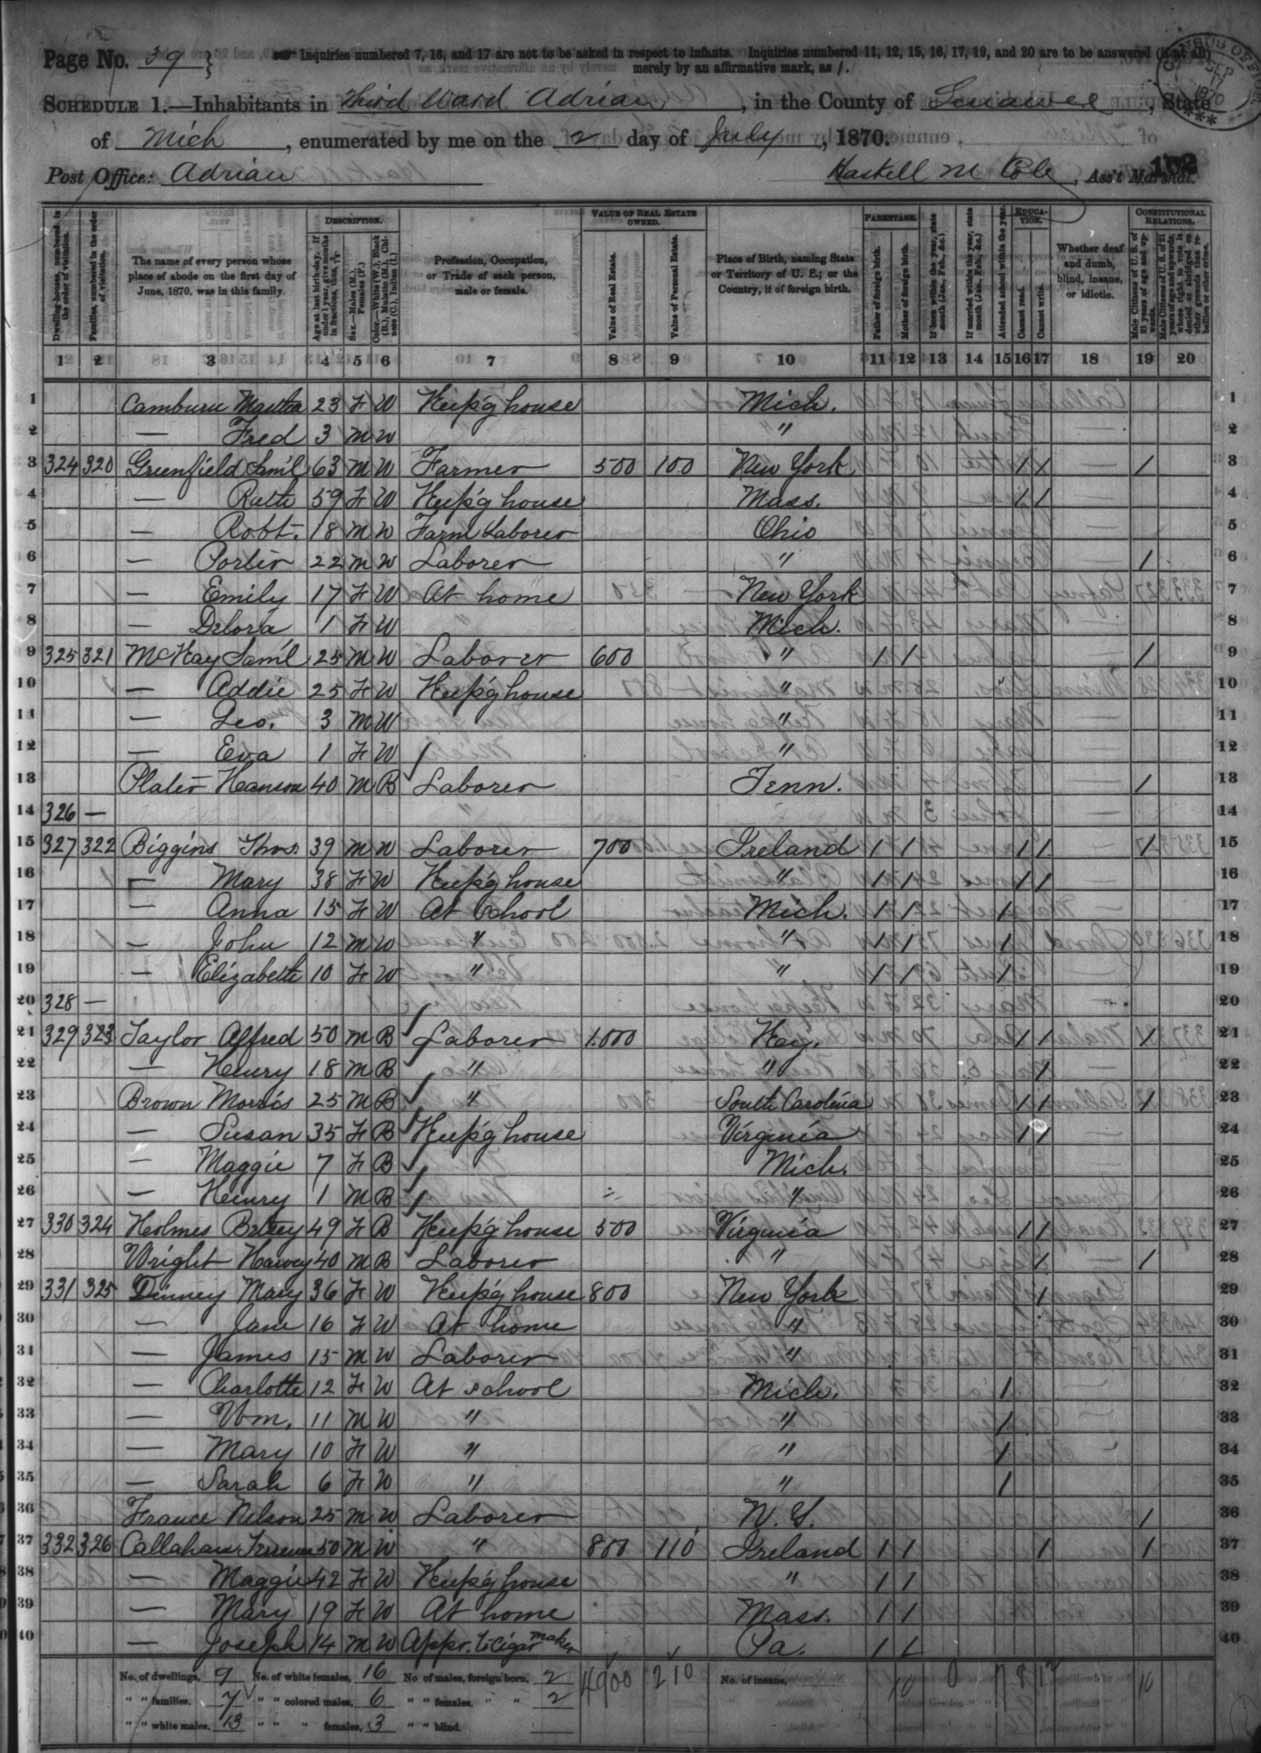 Page No. 39
Inquiries numbered 7, 16, and 17 are not to be asked in respect to infants. Inquiries numbered 11, 12, 15, 16, 17, 19, and 20 are to be answered (if at all)
merely by an affirmative mark, as /.
SCHEDULE 1.—Inhabitants in Third Ward Adrian, in the County of Lenawee, State
of Mich, enumerated by me on the 2 day of July, 1870.
Post Office: Adrian Haskell M Cole, Ass't Marshal.
DESCRIPTION. VALUE OF REAL ESTATE OWNED. PARENTAGE. EDUCATION. CONSTITUTIONAL RELATIONS.
Dwelling-houses, numbered in the order of visitation.
Families, numbered in the order of visitation.
The name of every person whose place of abode on the first day of June, 1870, was in this family.
Profession, Occupation, or Trade of each person, male or female.
Value of Real Estate.
Value of Personal Estate.
Place of Birth, naming State or Territory of U. S.; or the Country, if of foreign birth.
Father of foreign birth.
Mother of foreign birth.
Attended school within the year.
Cannot read.
Cannot write.
Whether deaf and dumb, blind, insane, or idiotic.
1 2 3 4 5 6 7 8 9 10 11 12 13 14 15 16 17 18 19 20
1 Camburn Martha 23 F W Keep'g house Mich. 1
2 — Fred 3 M W " 2
3 324 320 Greenfield Sam'l 63 M W Farmer 500 100 New York / / — / 3
4 — Ruth 59 F W Keep'g house Mass. / / 4
5 — Robt. 18 M W Farm Laborer Ohio 5
6 — Porter 22 M W Laborer " / 6
7 — Emily 17 F W At home New York 7
8 — Delora 1 F W Mich. 8
9 325 321 McKay Sam'l 25 M W Laborer 600 " / / / 9
10 — Addie 25 F W Keep'g house " 10
11 — Geo. 3 M W " 11
12 — Eva 1 F W " 12
13 Plater Hanson 40 M B Laborer Tenn. / 13
14 326 — 14
15 327 322 Biggins Thos. 39 M W Laborer 700 Ireland / / / / / 15
16 — Mary 38 F W Keep'g house " / / / / 16
17 — Anna 15 F W At School Mich. / / / 17
18 — John 12 M W " " / / / 18
19 — Elizabeth 10 F W " " / / / 19
20 328 — 20
21 329 323 Taylor Alfred 50 M B Laborer 1.000 Key. / / / 21
22 — Henry 18 M B " " / 22
23 Brown Morris 25 M B " South Carolina / / / 23
24 — Susan 35 F B Keep'g house Virginia / / 24
25 — Maggie 7 F B Mich. 25
26 — Henry 1 M B " 26
27 330 324 Holmes 49 F B Keep'g house 500 Virginia / / 27
28 Wright Harvey 40 M B Laborer " / / 28
29 331 325 Dinney Mary 36 F W Keep'g house 800 New York / 29
30 — Jane 16 F W At home " 30
31 — James 15 M W Laborer " 31
32 — Charlotte 12 F W At school Mich. / 32
33 — Wm. 11 M W " " / 33
34 — Mary 10 F W " " / 34
35 — Sarah 6 F W " " / 35
36 France Nelson 25 M W Laborer N. Y. / 36
37 332 326 Callahan 50 M W " 800 110 Ireland / / / / 37
38 — Maggie 42 F W Keep'g house " / / 38
39 — Mary 19 F W At home Mass. / / 39
40 — Joseph 14 M W Appr. to Cigar maker Pa. / / 40
No. of dwellings, 9 No. of white females, 16 No. of males, foreign born, 2 4900 210 No. of insane,
" " families, 7 " " colored males, 6 " " females, " " 2
" " white males, 13 " " " females, 3 " " blind.